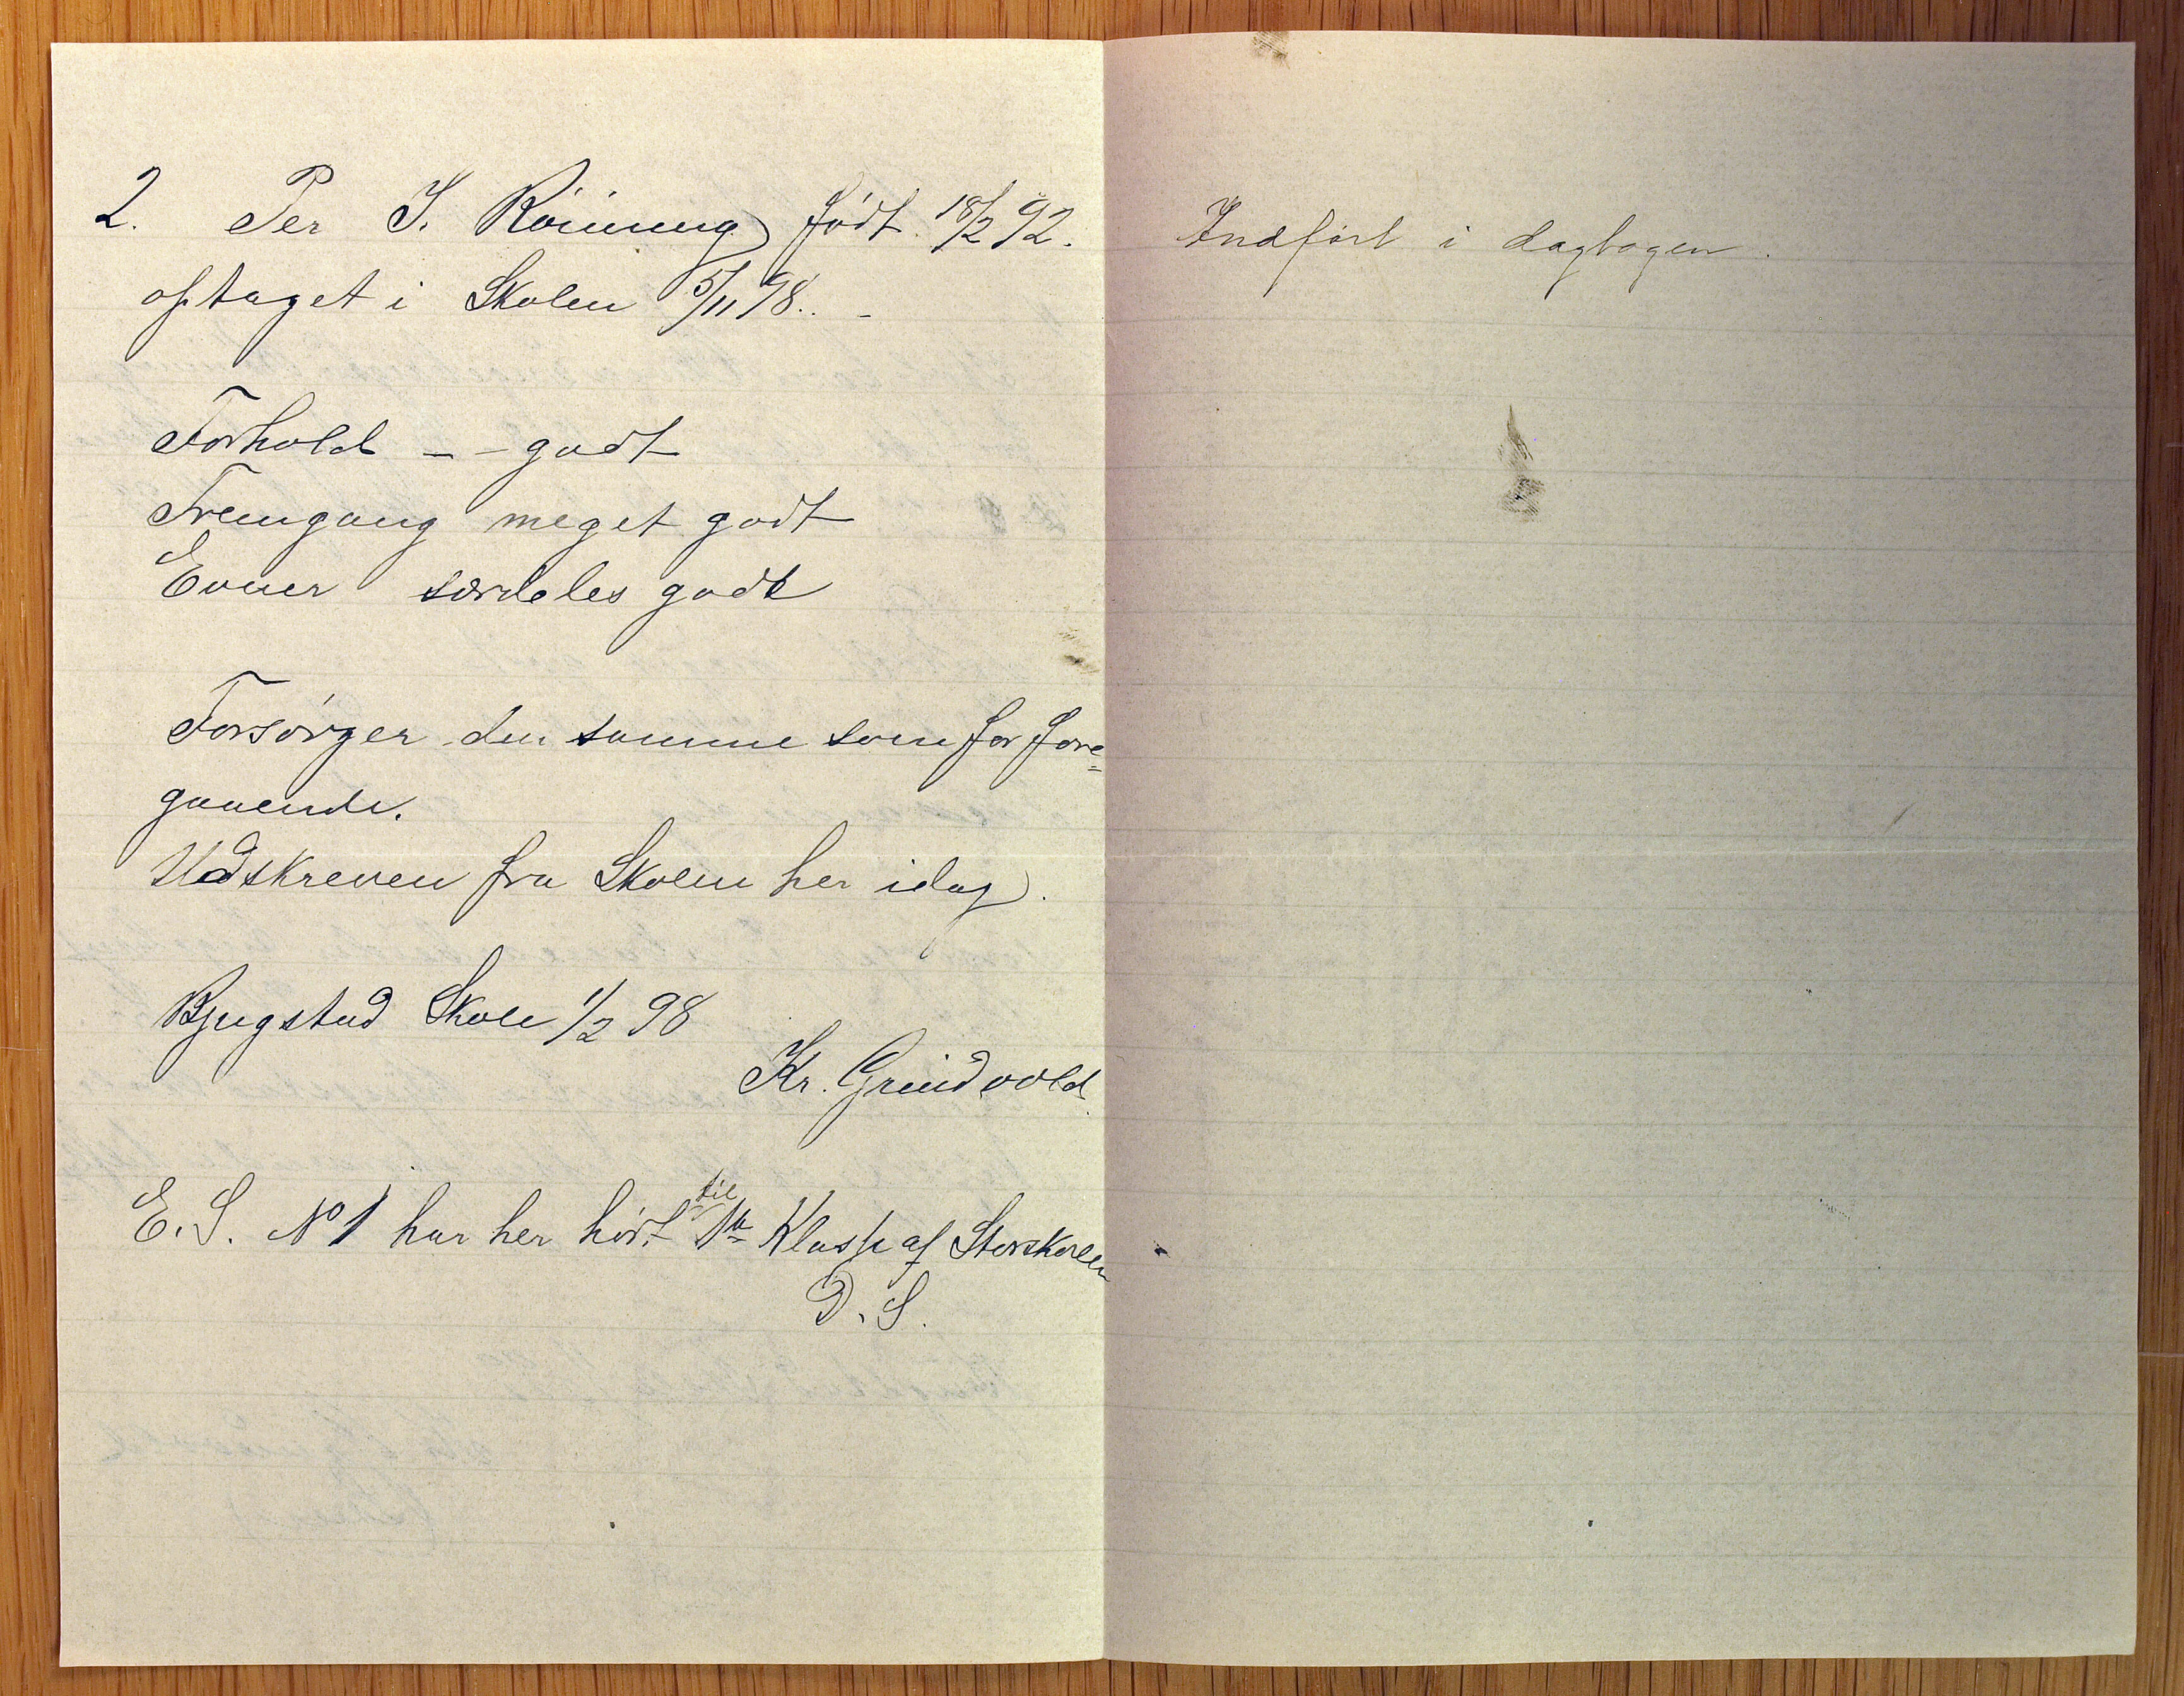 2. Per I. Röining född 18/2 92.
optaget i Skolen 5/11 98. -
Forhold - - godt
Fremgang meget godt
Evner særdeles godt
Forsörger den samme som for fore=
gaaende.
Udskreven fra Skolen her idag.
Bjugstad Skole 1/2 98
Kr. Grindvold
E. S. No 1 har her hört til 1ste Klasse af Storskolen
D. S.
Indfört i dagbogen.